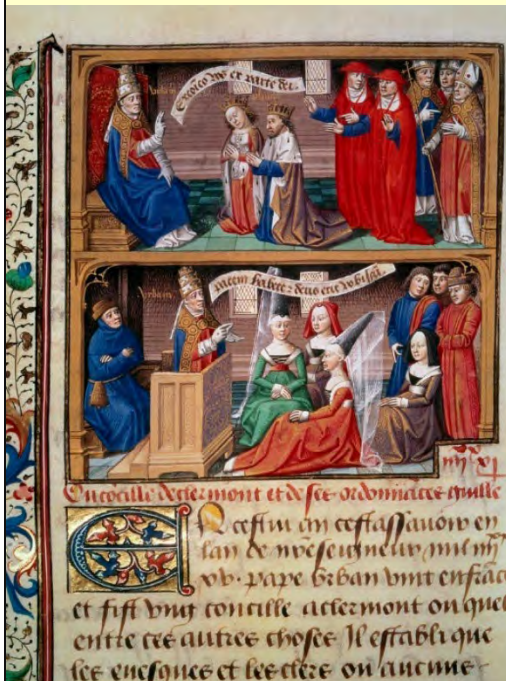 vos ex parte dei
Urbain
pacem habete deus erit
Du de clermont et de ses ordonnances
EN cestui an cestassavoir en
lan de nreseigneur mil iiij
xv. pape Urban vint en frāce
et fist vng concille a clermont ou quel
entre ces autres choses Il establi que
les euesques et les clers ou aucuns